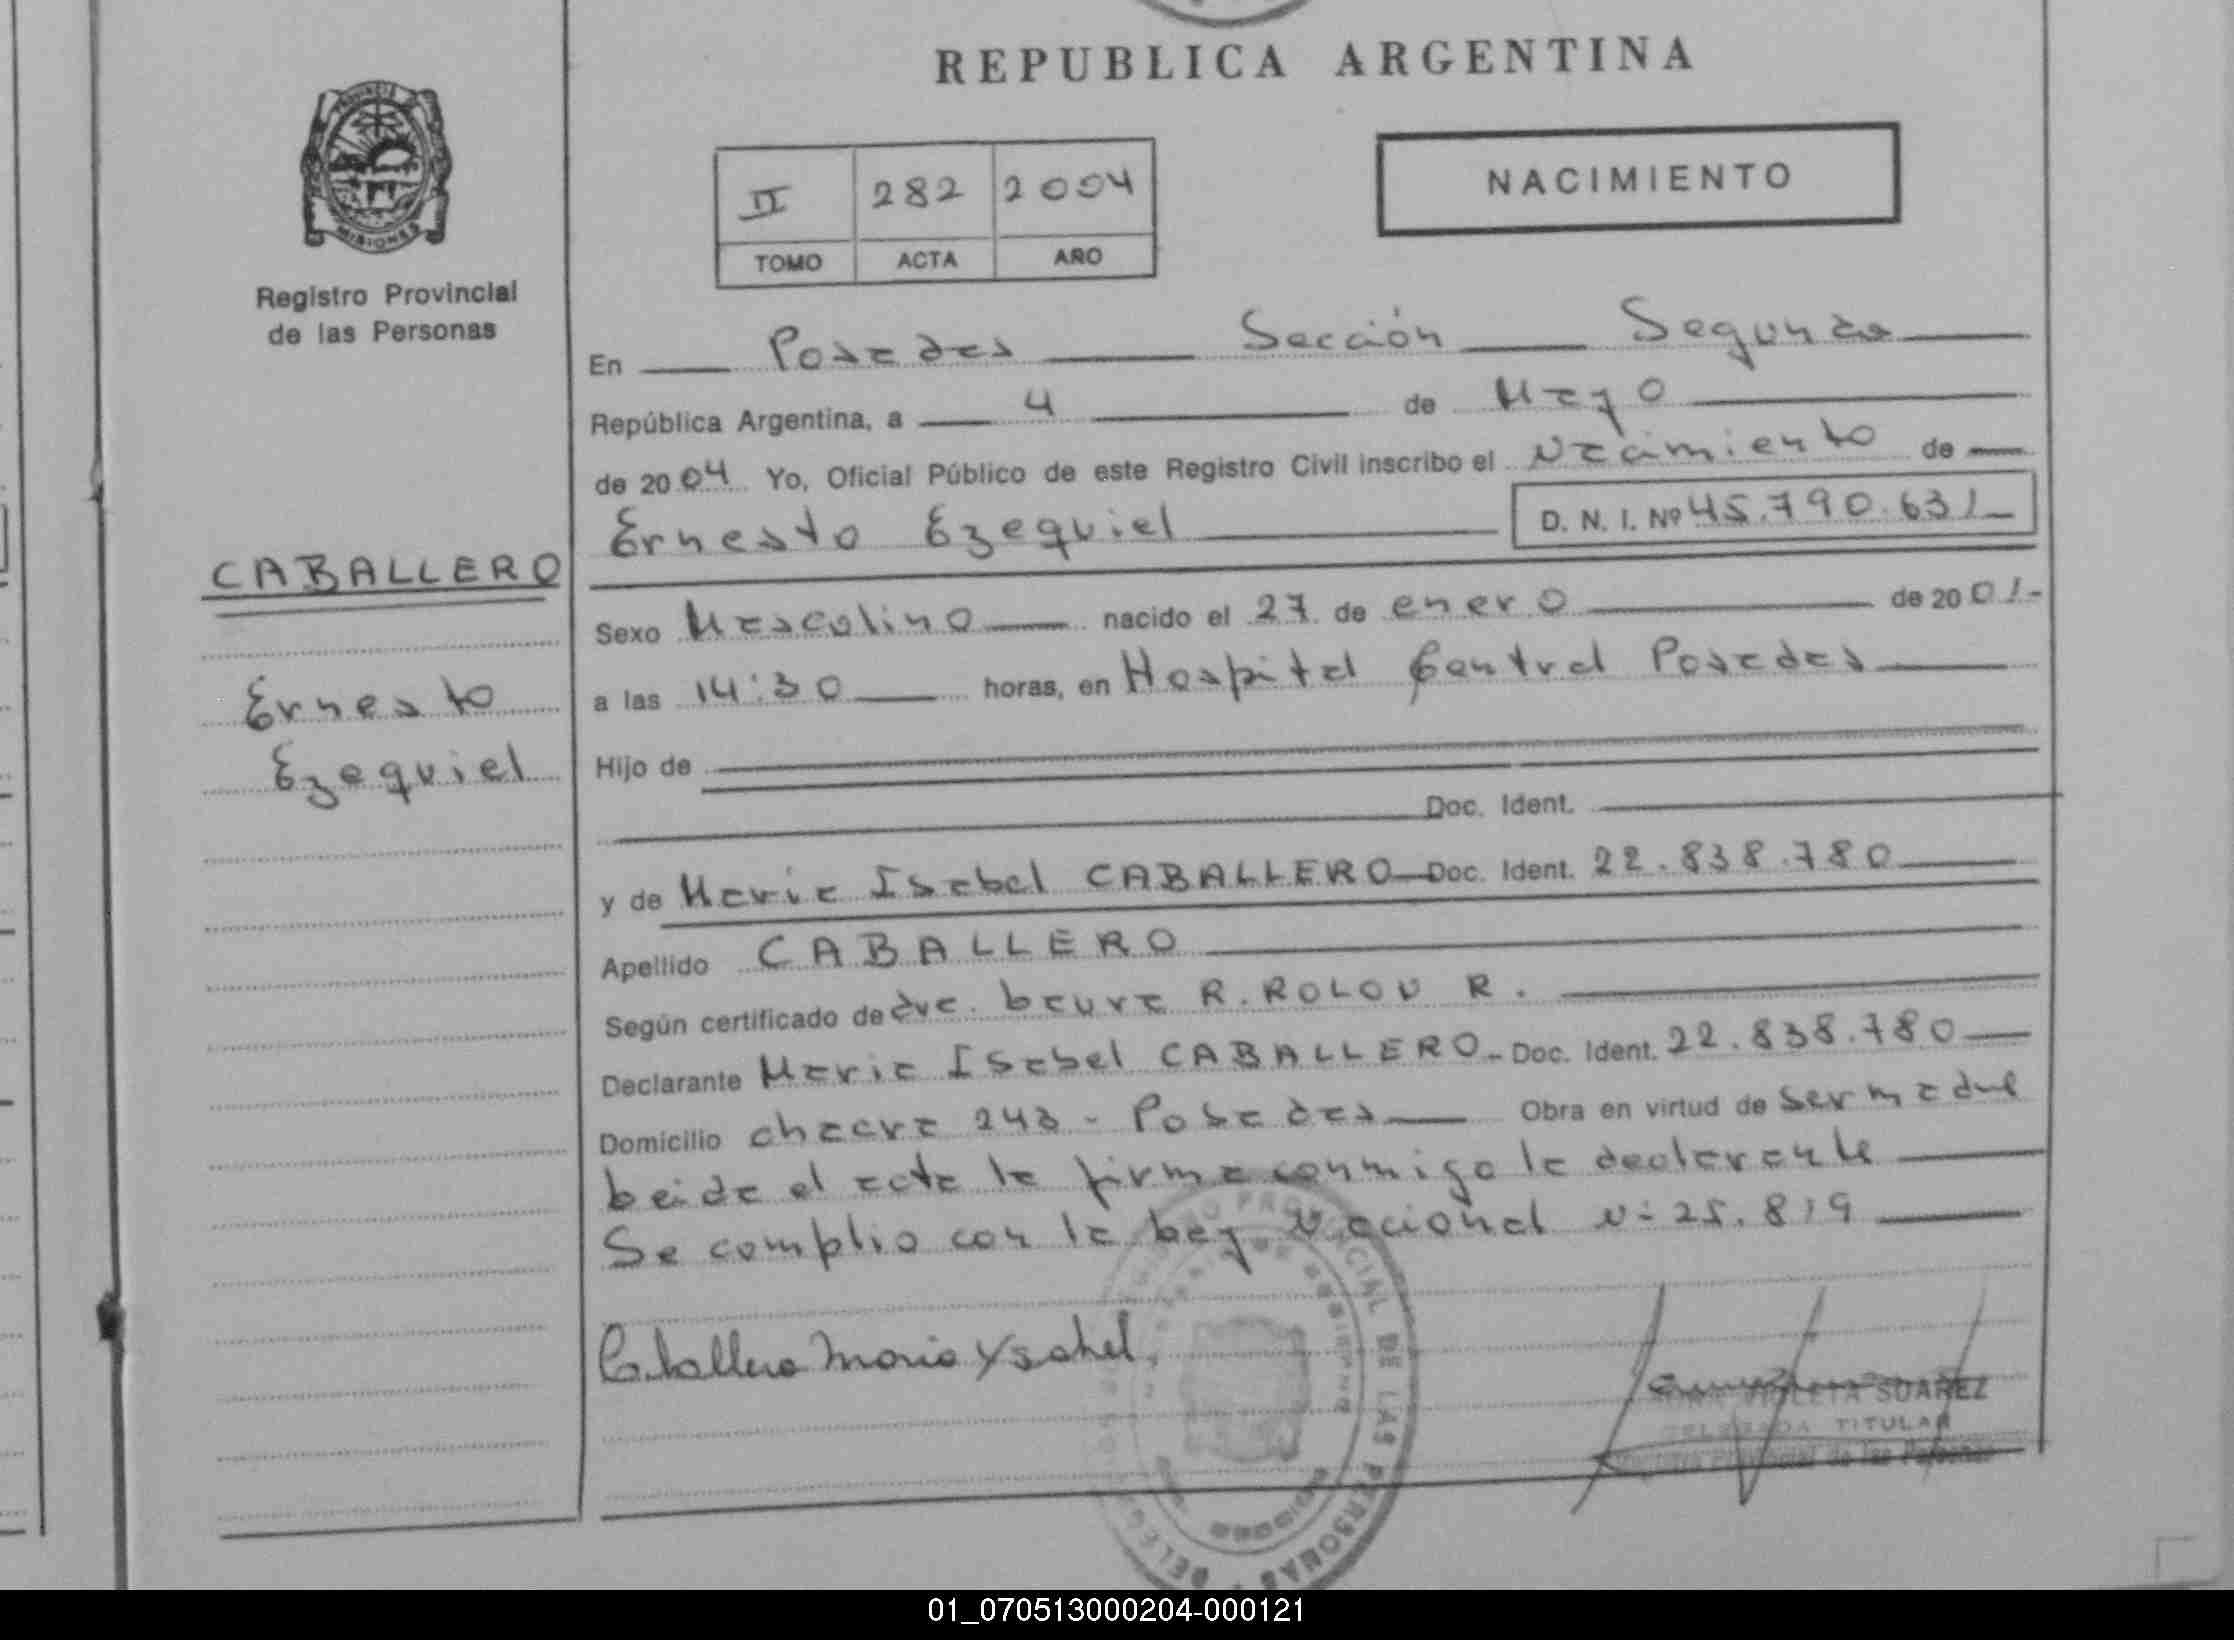 REPUBLICA ARGENTINA
PROVINCIA
MISIONES
Registro Provincial
de las Personas
NACIMIENTO
II 282 2004
TOMO ACTA AÑO
En Posadas Sección Segunda
República Argentina, a 4 de Mayo
de 2004 Yo, Oficial Público de este Registro Civil inscribo el Nacimiento de
Ernesto Ezequiel D. N. I. Nº 45.790.631
CABALLERO
Ernesto
Ezequiel
Sexo Masculino nacido el 27 de enero de 2001.-
a las 14:30 horas, en Hospital Central Posadas
Hijo de
Doc. Ident.
y de Maria Isabel CABALLERO Doc. Ident. 22.838.780
Apellido CABALLERO
Según certificado de dra. Laura R. ROLON R.
Declarante Maria Isabel CABALLERO - Doc. Ident. 22.838.780
Domicilio chacra 243 - Posadas Obra en virtud de ser madre
Leida el acta la firma conmigo la declarante
Se complio con la Ley Nacional N= 25.819
Caballero Maria Ysabel
VIOLETA SUAREZ
DELEGADA TITULAR
Registro Provincial de las Personas
PROVINCIAL DE LAS PERSONAS
01_070513000204-000121